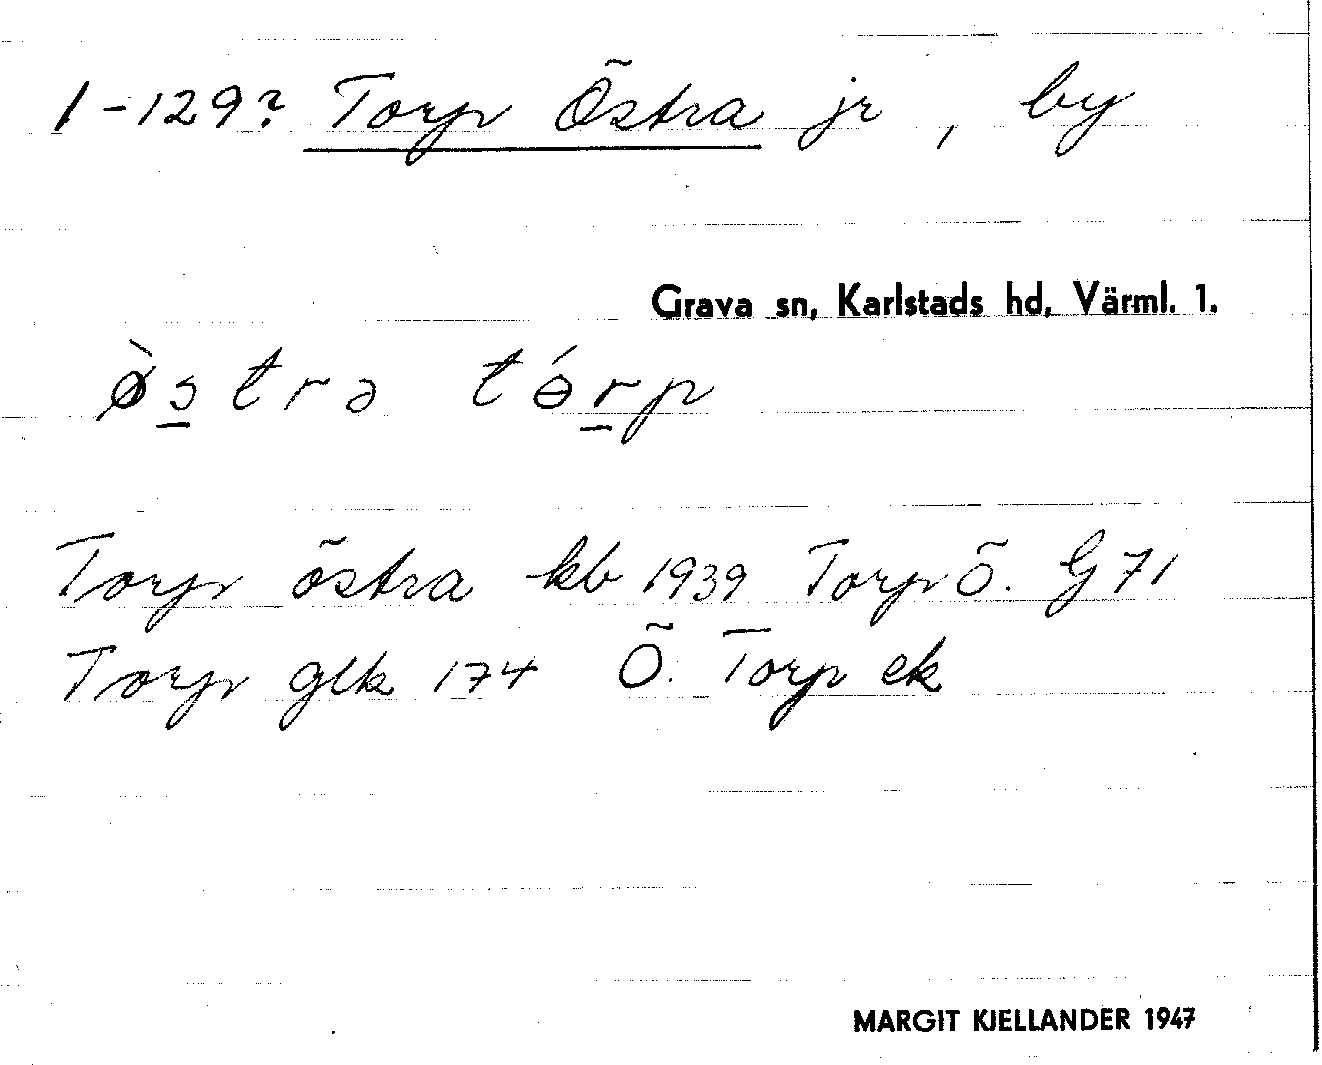 1-129? Torp Östra jr, by
Grava sn, Karlstads hd, Värml. 1.
ø̀stra tɵ́rp
Torp östra kb 1939 Torp Ö. G 71
Torp glk 174 Ö. Torp ek
MARGIT KJELLANDER 1947